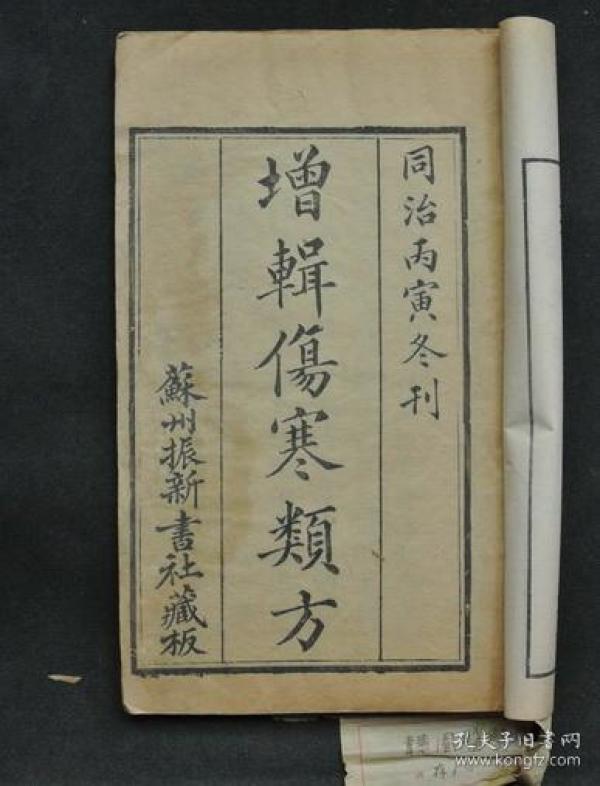 同治丙寅冬刊
增輯傷寒類方
蘇州振新書社藏板
存
孔夫子旧书网
www.kongfz.com